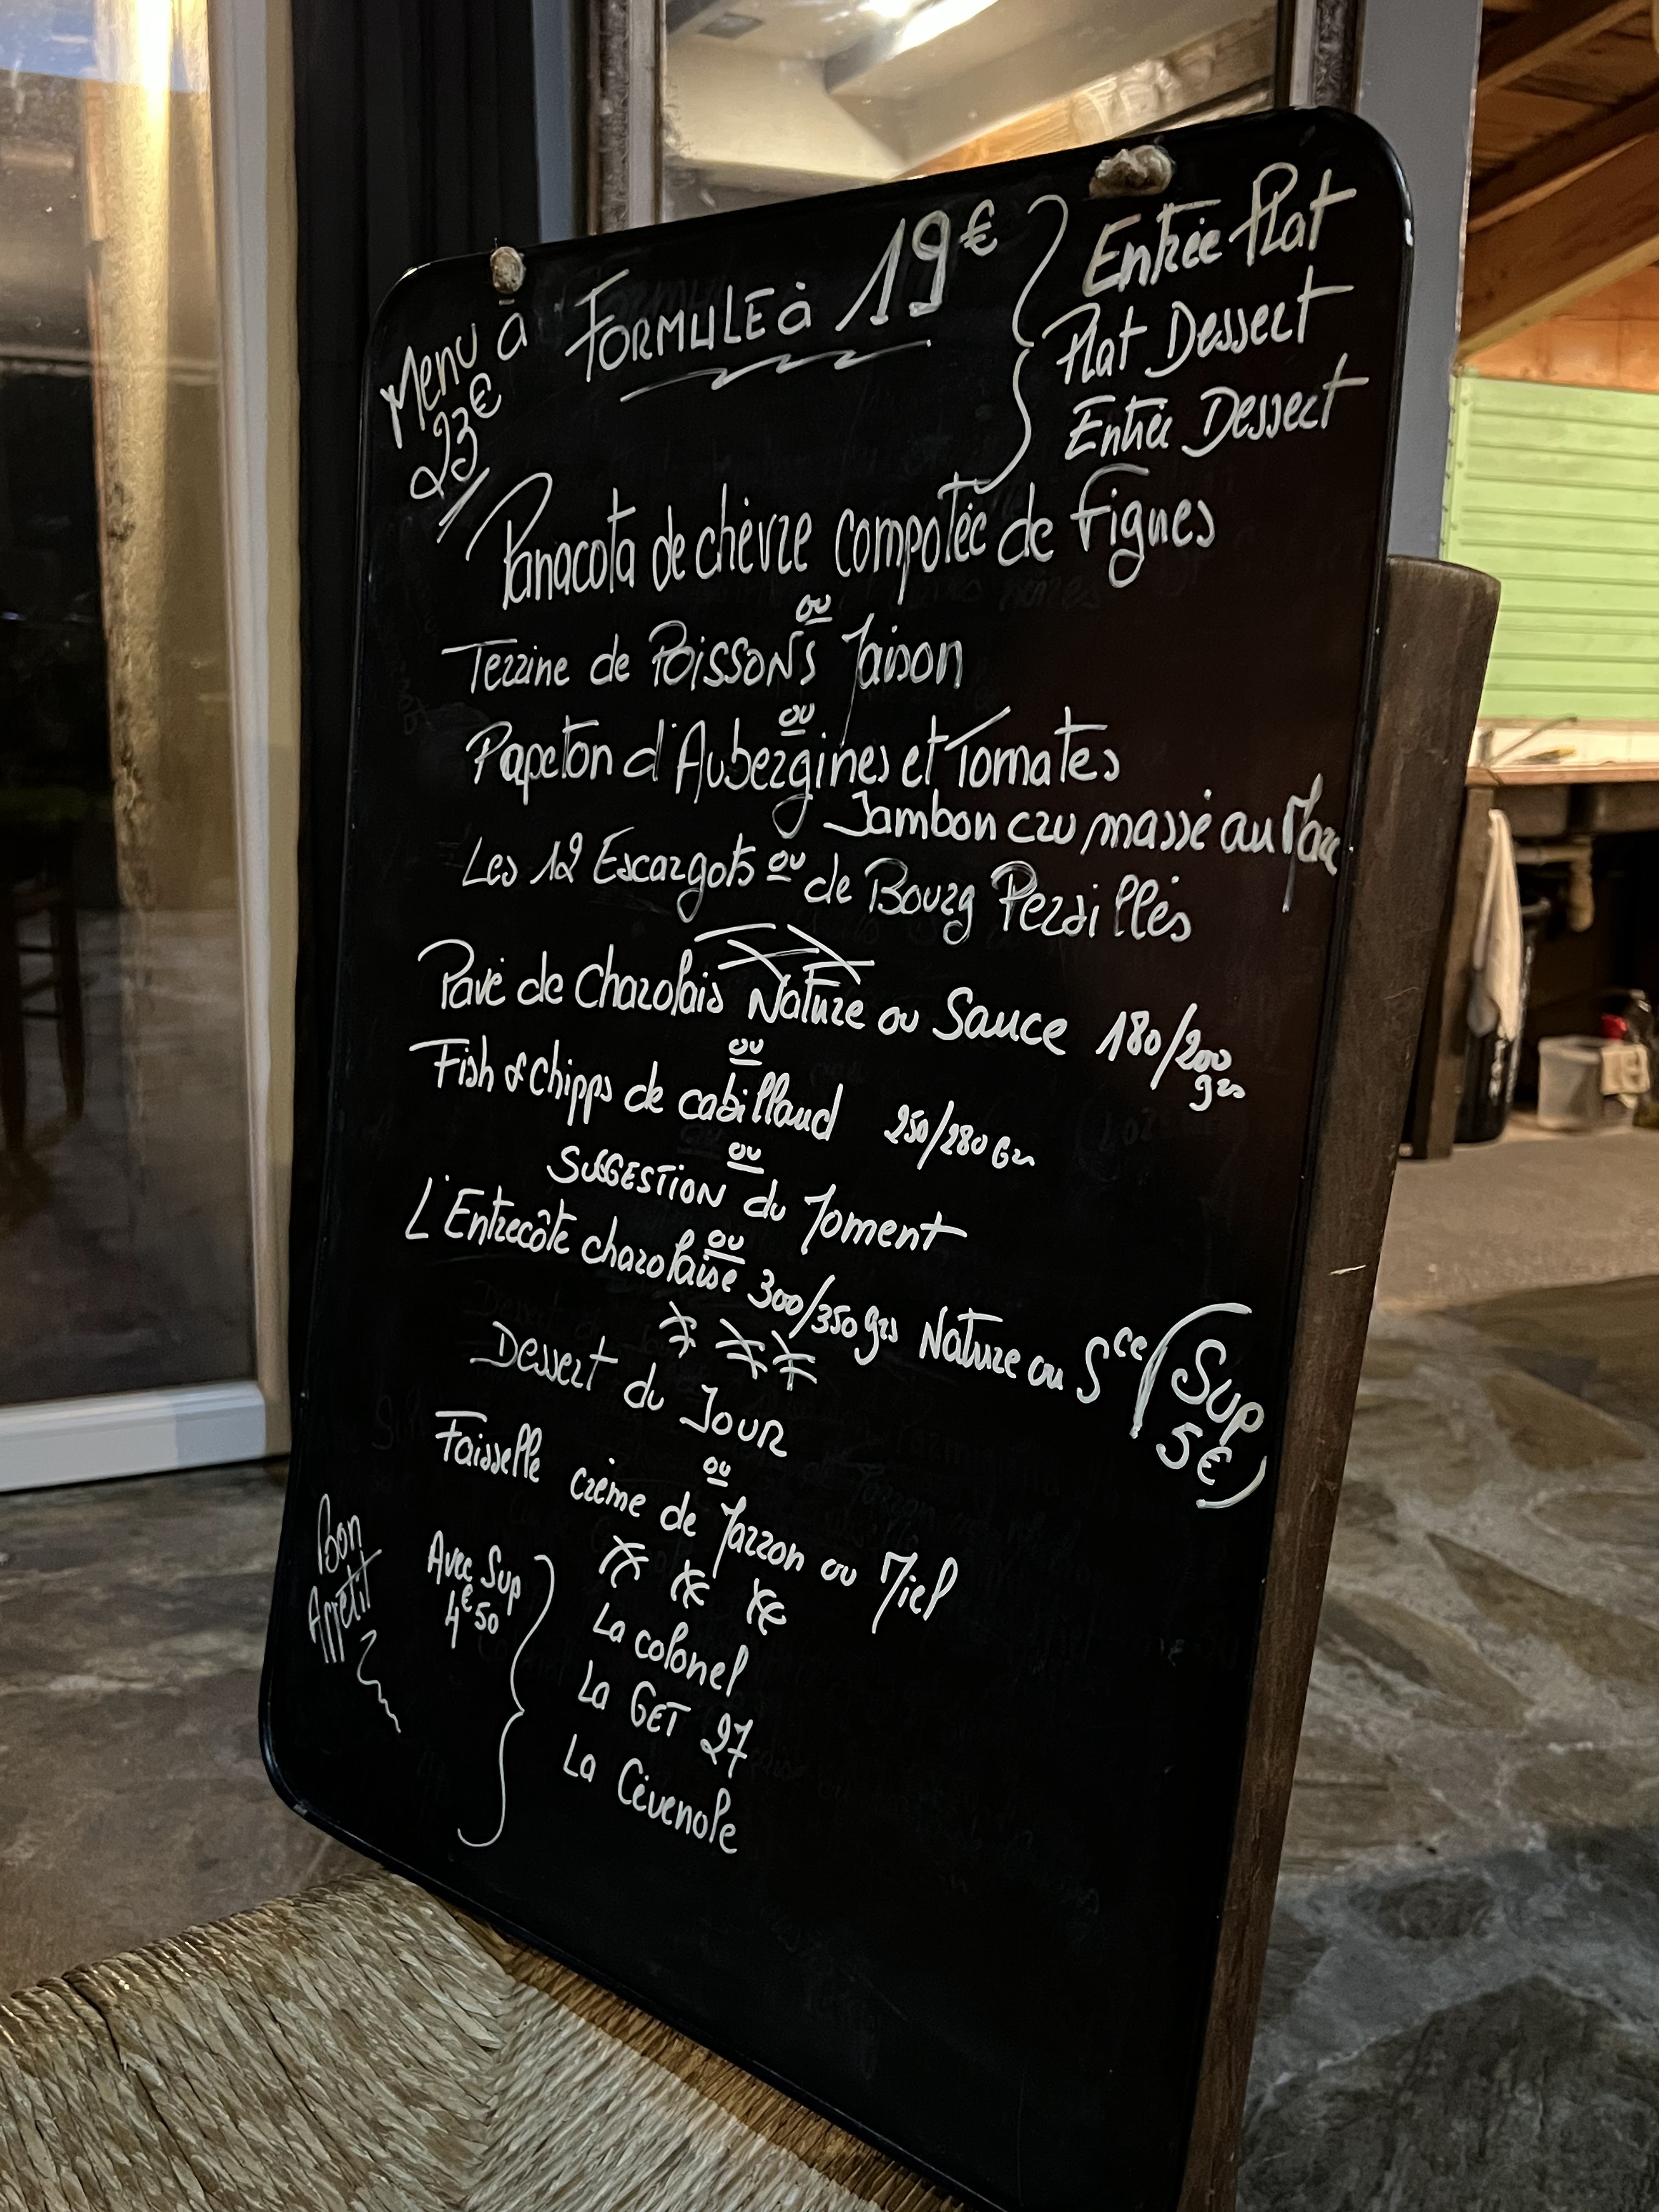 Menu à
23€
FORMULE à 19€
Entrée Plat
Plat Dessert
Entrée Dessert
Panacota de chèvre compotée de figues
ou
Terrine de POISSONS Maison
ou
Papeton d'Aubergines et Tomates
Jambon cru massé au Marc
Les 12 Escargots ou de Bourg Persillés
Pavé de Charolais Nature ou Sauce 180/200
grs
ou
Fish & Chipps de cabillaud 250/280 Grs
ou
SUGGESTION du Moment
ou
L'Entrecôte charolaise 300/350 grs Nature ou Sce (Sup
5€)
Dessert du JOUR
ou
Faisselle crème de Marron ou Miel
Avec Sup
4€50
La colonel
La GET 27
La Cévenole
Bon
Appétit